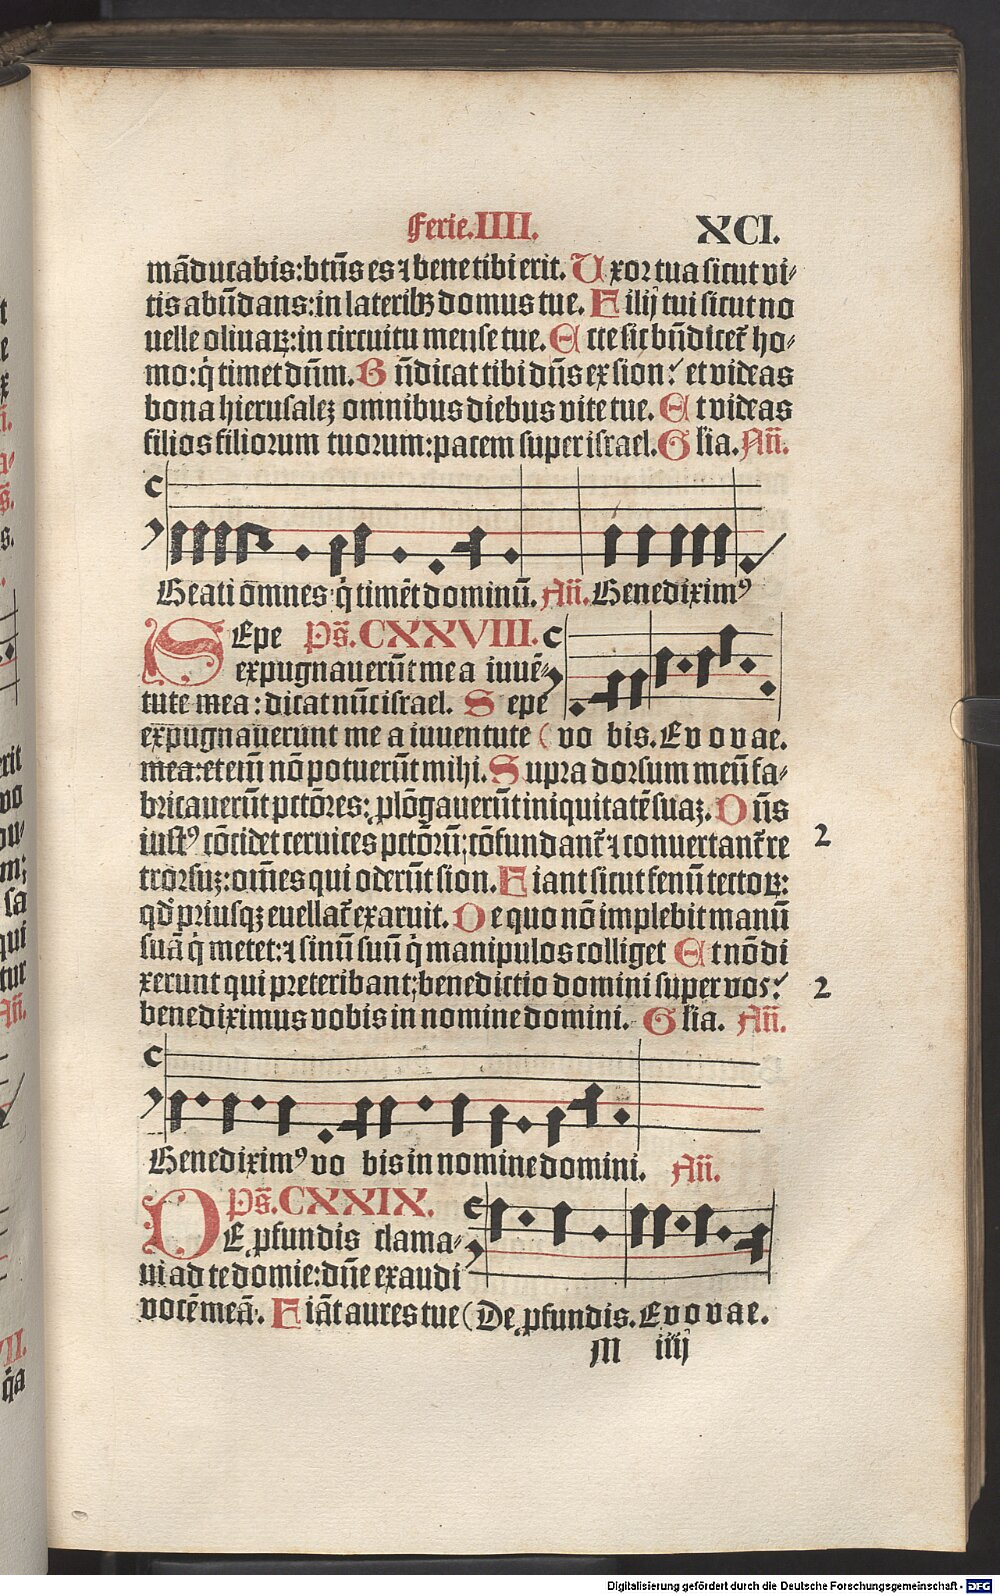 Ferie.IIII. XCI.
mãducabis:btũs es ⁊ bene tibi erit. Uxor tua sicut vi⸗
tis abũdans:in laterib⁹ domus tue. Filij tui sicut no
uelle oliuaꝝ:in circuitu mense tue. Ecce sic bñdicet̃ ho⸗
mo:q̇ timet dñm. Bñdicat tibi dñs ex sion: et videas
bona hierusaleꝫ omnibus diebus vite tue. Et videas
filios filiorum tuorum:pacem super israel. Glia. Añ.
Beati omnes q̇ timẽt dominũ. Añ. Benedixim⁹
SEpe Ps̃. CXXVIII.
expugnauerũt me a iuuẽ⸗
tute mea: dicat nũc israel. Sepe
expugnauerunt me a iuuentute (vo bis. Evovae.
mea:etem̃ nõ potuerũt mihi. Supra dorsum meũ fa⸗
bricauerũt pctõres: ꝓlõgauerũt iniquitatẽ suaꝫ. Dñs
iust⁹ cõcidet ceruices pctõrũ: cõfundant̃ ⁊ conuertant̃ re 2
trorsuꝫ:om̃es qui oderũt sion. Fiant sicut fenũ tectoꝝ:
qd̃ priusqꝫ euellat̃ exaruit. De quo nõ implebit manũ
suã q̇ metet:⁊ sinũ suũ q̇ manipulos colliget Et nõ di
xerunt qui preteribant:benedictio domini super vos: 2
benediximus vobis in nomine domini. Glia. Añ.
Benedixim⁹ vo bis in nomine domini. Añ.
Ps̃. CXXIX.
DE ꝓfundis clama⸗
ui ad te domie:dñe exaudi
vocẽ meã. Fiãt aures tue (De ꝓfundis. Evovae.
M iiij
Digitalisierung gefördert durch die Deutsche Forschungsgemeinschaft - DFG